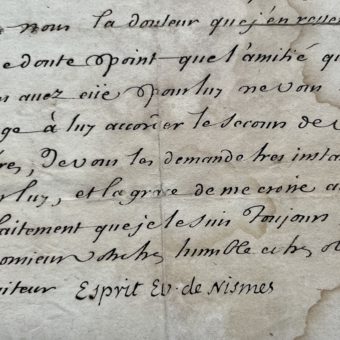 nous la douleur que j'en ressen
e doute point que l'amitié qu
auez eüe pour luy ne vous
ge à luy accorder le secours de v
res, Je vous les demande tres insta
luy, et la grace de me croire au
faitement que je le suis Toujours
monsieur votre tres humble et tres o
viteur Esprit Ev. de Nismes